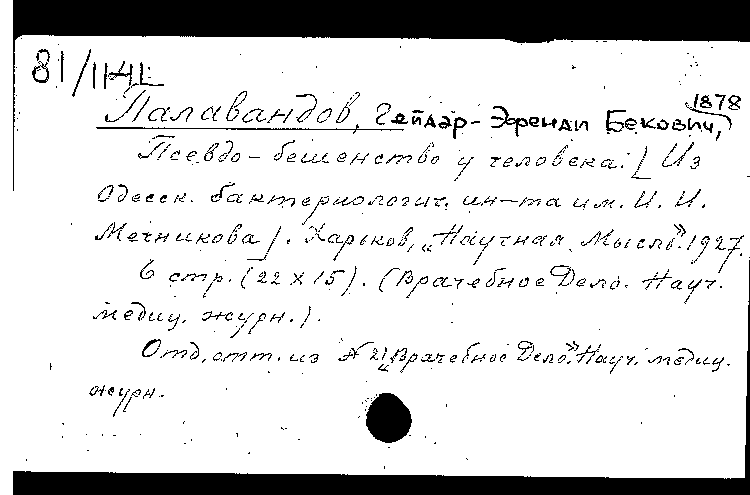 81/1141
1878
Палавандов, Гейдар-Эфенди Бекович,
Псевдо-бешенство у человека. [Из
Одесск. бактериологич. ин-та им. И. И.
Мечникова]. Харьков, „Научная Мысль". 1927.
6 стр. (22 х 15). (Врачебное Дело. Науч.
медиц. журн.).
Отд. отт. из № 21 „Врачебное Дело". Науч. медиц.
журн.